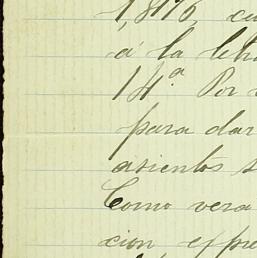 á la letra
14ª Por
para dar
asientos s
Como vera
cion expre